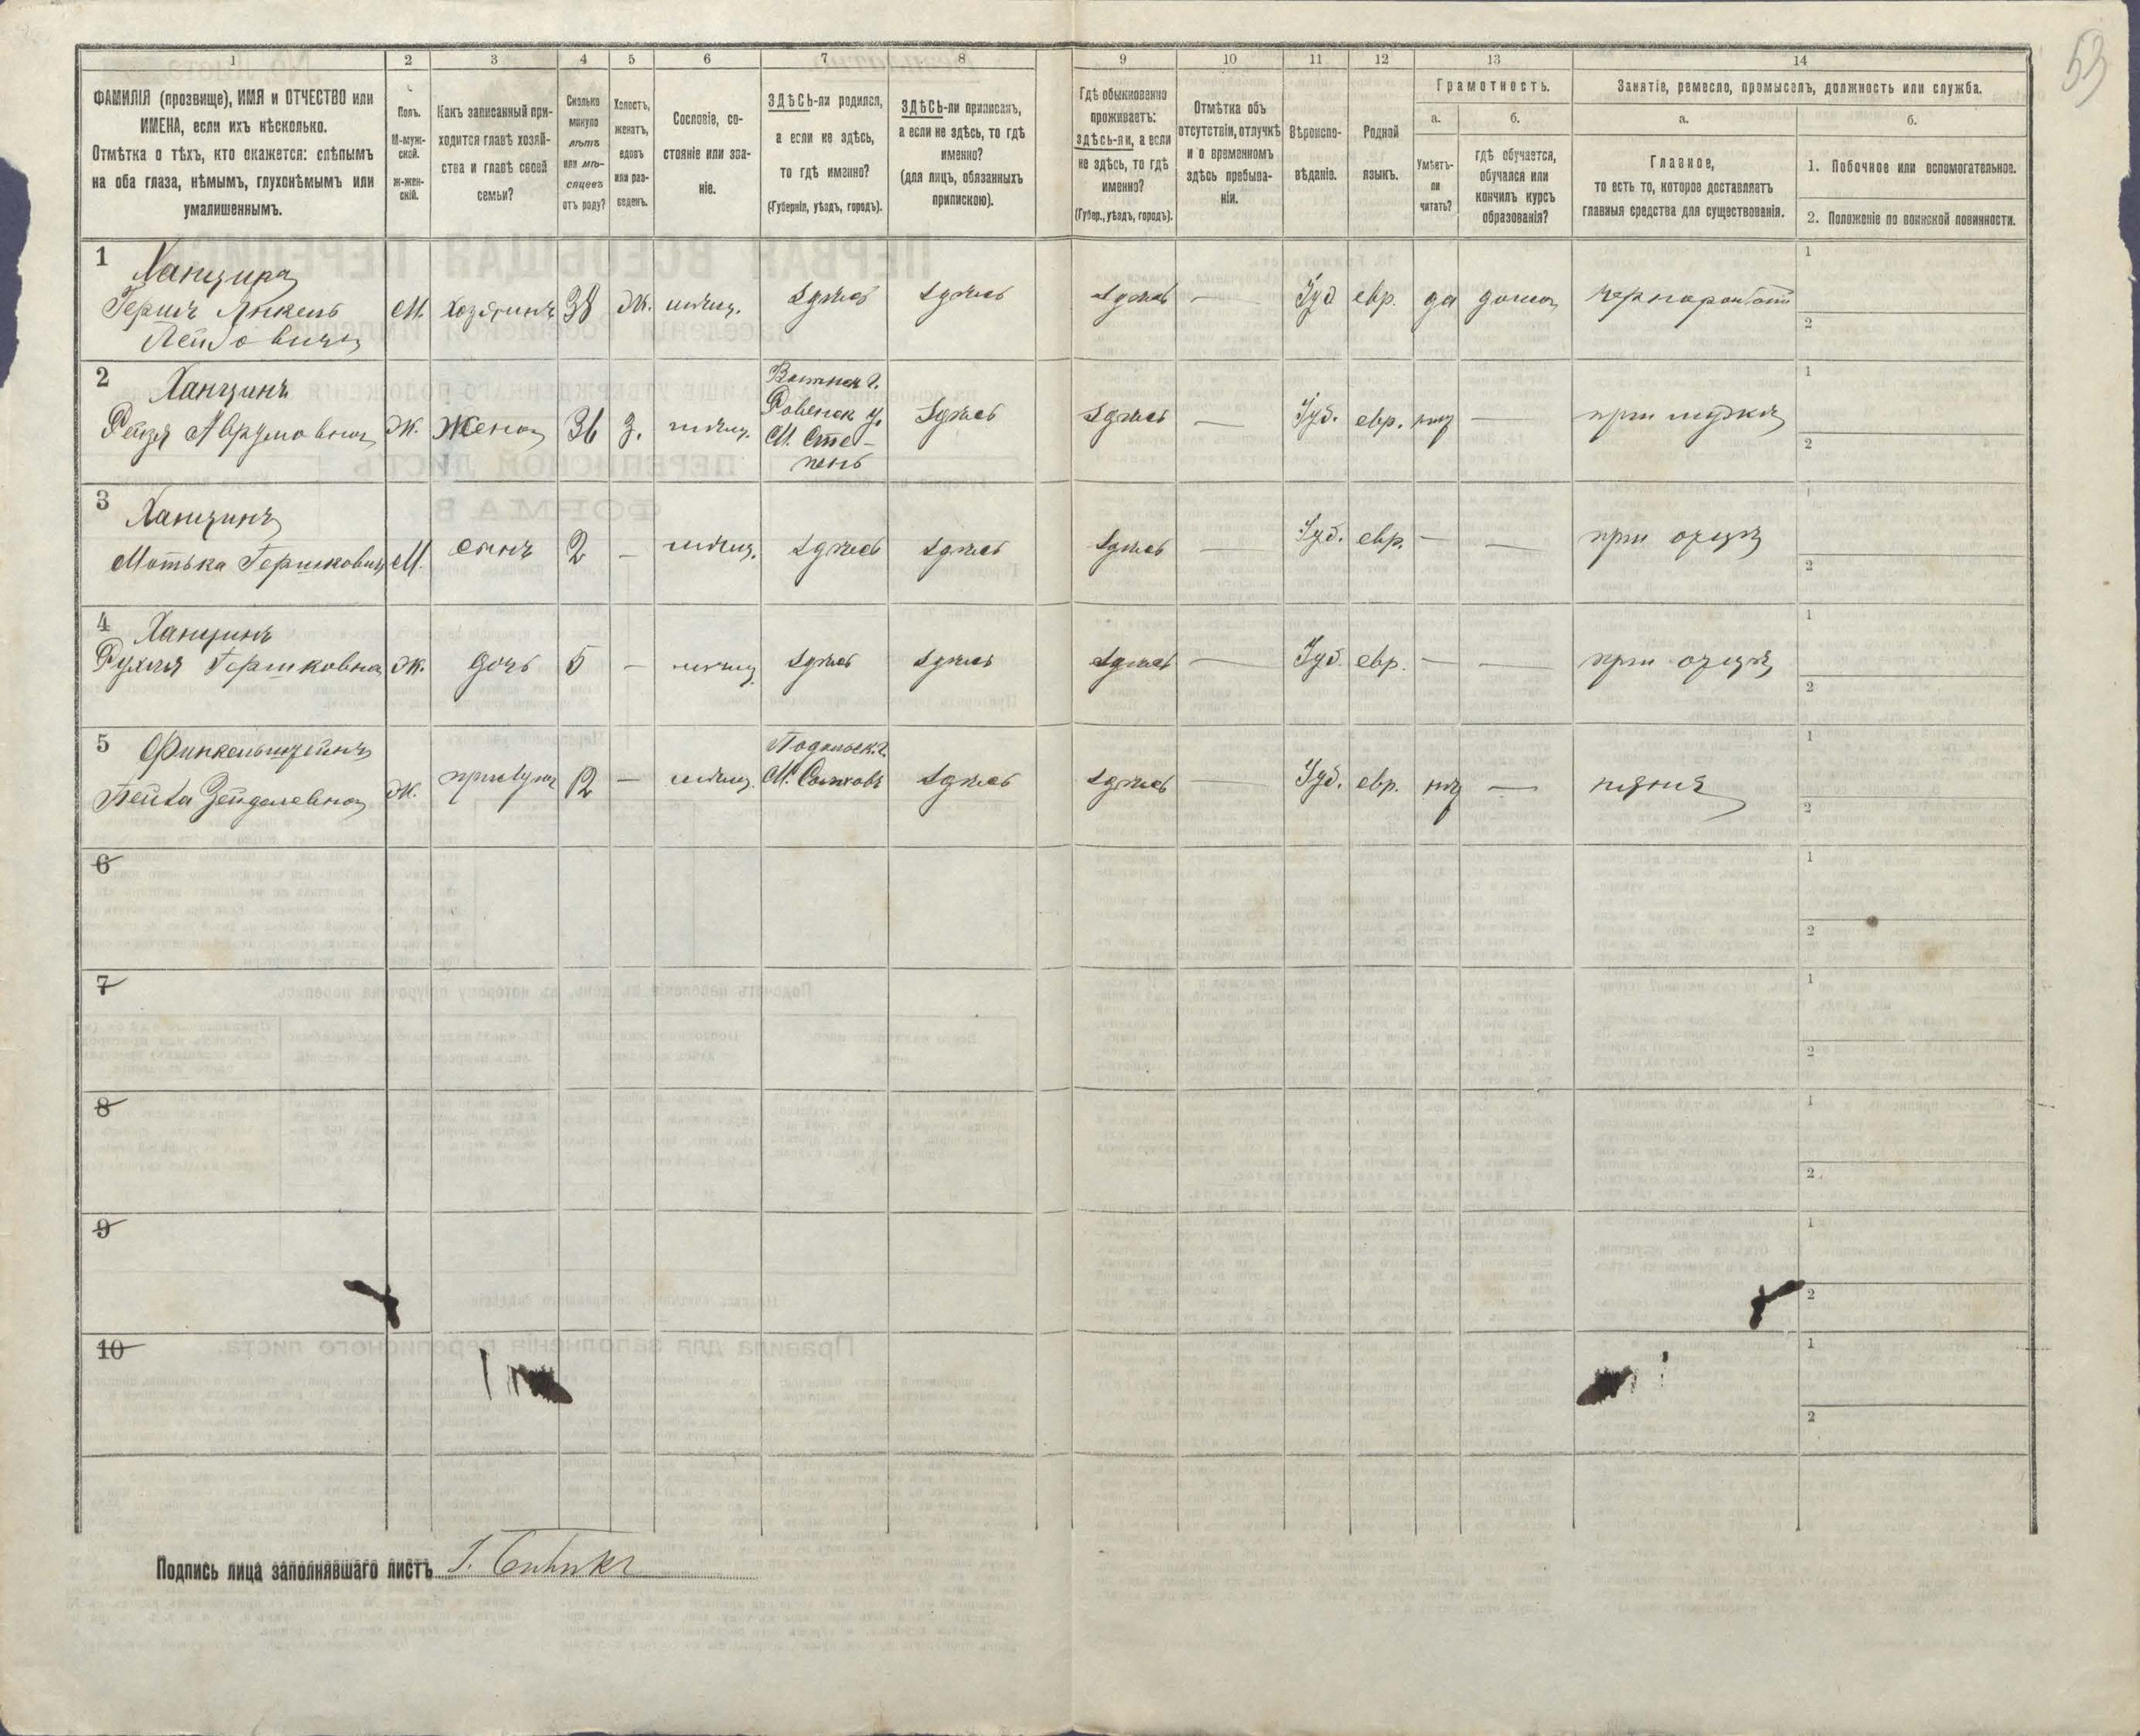 53
1 2 3 4 5 6 7 8 9 10 11 12 13 14
ФАМИЛІЯ (прозвище), ИМЯ и ОТЧЕСТВО или
ИМЕНА, если ихъ нѣсколько.
Отмѣтка о тѣхъ, кто окажется: слѣпымъ
на оба глаза, нѣмымъ, глухонѣмымъ или
умалишеннымъ.
Полъ.
М-муж-
ской.
Ж-жен-
скій.
Какъ записанный при-
ходится главѣ хозяй-
ства и главѣ своей
семьи?
Сколько
минуло
лѣтъ
или мѣ-
сяцевъ
отъ роду?
Холостъ,
женатъ,
вдовъ
или раз-
веденъ.
Сословіе, со-
стояніе или зва-
ніе.
ЗДѢСЬ-ли родился,
а если не здѣсь,
то гдѣ именно?
(Губернія, уѣздъ, городъ).
ЗДѢСЬ-ли приписанъ,
а если не здѣсь, то гдѣ
именно?
(для лицъ, обязанныхъ
припискою).
Гдѣ обыкновенно
проживаетъ:
здѣсь-ли, а если
не здѣсь, то гдѣ
именно?
(Губер., уѣздъ, городъ).
Отмѣтка объ
отсутствіи, отлучкѣ
и о временномъ
здѣсь пребыва-
ніи.
Вѣроиспо-
вѣданіе.
Родной
языкъ.
Грамотность.
а.
Умѣетъ-
ли
читать?
б.
гдѣ обучается,
обучался или
кончилъ курсъ
образованія?
Занятіе, ремесло, промыселъ, должность или служба.
а.
Главное,
то есть то, которое доставляетъ
главныя средства для существованія.
б.
1. Побочное или вспомогательное.
2. Положеніе по воинской повинности.
1
Гершъ Янкель
М. хозяинъ 38 Ж. мѣщ. здѣсь здѣсь здѣсь — Іуд евр. да дома чернорабочій
1
2
2 Ханцинъ
Рейзя Аврумовна Ж. Жена 36 З. мѣщ.
Волынск г.
Ровенск у.
М. Сте-
пень
здѣсь здѣсь — Іуд. евр. нѣ — при мужѣ
1
2
3 Ханцинъ
Мотька Гершковичъ М. сынъ 2 — мѣщ. здѣсь здѣсь здѣсь — Іуд. евр. — — при отцѣ
1
2
4 Ханцинъ
Рухля Гершковна Ж. дочь 5 — мѣщ. здѣсь здѣсь здѣсь — Іуд. евр. — — при отцѣ
1
2
5 Финкельштейнъ
Бейла Зейделевна Ж. прислуга 12 — мѣщ.
Подольск. г.
М.
здѣсь здѣсь — Іуд. евр. нѣ — няня
1
2
6
1
2
7
1
2
8
1
2
9
1
2
10
1
2
Подпись лица заполнявшаго листъ